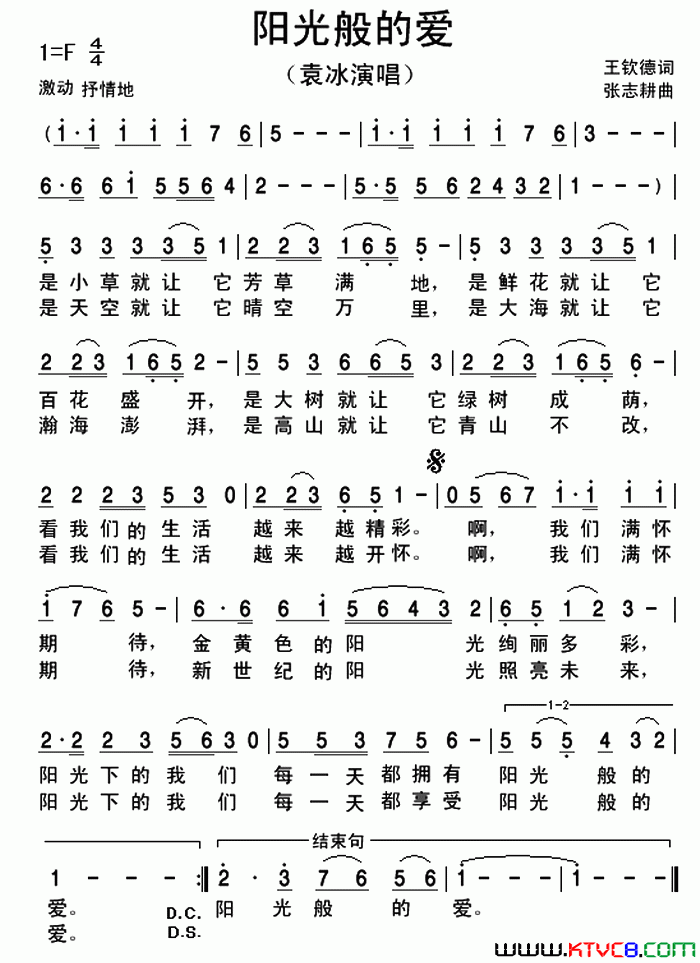 阳光般的爱
1=F 4/4
（袁冰演唱）
王钦德词
激动 抒情地
张志耕曲
(i·i i i i 7 6 | 5 - - - | i·i i i 2 7 6 | 3 - - -
6·6 6 i 5 5 6 4 | 2 - - - | 5·5 5 6 2 4 3 2 | 1 - - - )
5 3 3 3 3 5 1 | 2 2 3 1 6 5 5 - | 5 3 3 3 3 5 1
是小草就让它芳草满地，是鲜花就让它
是天空就让它晴空万里，是大海就让它
2 2 3 1 6 5 2 - | 5 5 3 6 6 5 3 | 2 2 3 1 6 5 6 -
百花盛开，是大树就让它绿树成荫，
瀚海澎湃，是高山就让它青山不改，
2 2 2 3 5 3 0 | 2 2 3 6 5 1 - | 0 5 6 7 i·i i i
看我们的生活越来越精彩。啊，我们满怀
看我们的生活越来越开怀。啊，我们满怀
i 7 6 5 - | 6·6 6 i 5 6 4 3 2 | 6 5 1 2 3 -
期待，金黄色的阳光绚丽多彩，
期待，新世纪的阳光照亮未来，
1-2
2·2 2 3 5 6 3 0 | 5 5 3 7 5 6 - | 5 5 5 4 3 2
阳光下的我们每一天都拥有阳光般的
阳光下的我们每一天都享受阳光般的
结束句
1 - - - :‖ 2· 3 7 6 5 6 | i - - - | i - - - ‖
爱。D.C. 阳光般的爱。
爱。D.S.
WWW.KTVC8.COM